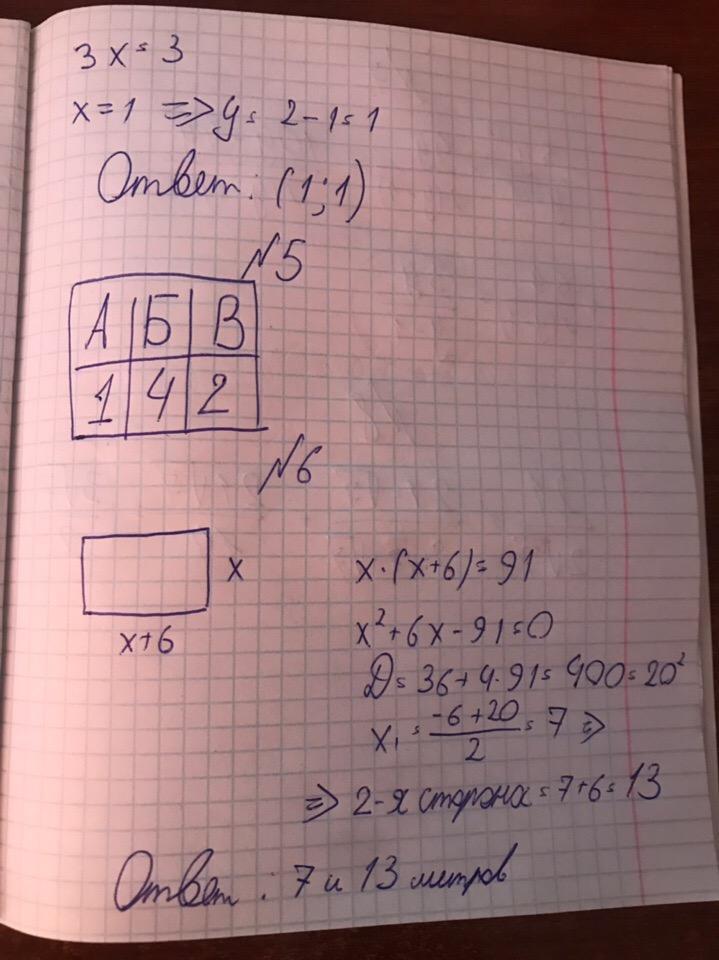 3x = 3
x = 1 => y = 2 - 1 = 1
Ответ: (1; 1)
№5
А Б В
1 4 2
№6
x
x+6
x·(x+6) = 91
x²+6x-91=0
D = 36+4·91 = 400 = 20²
x₁ = (-6+20)/2 = 7 =>
=> 2-я сторона = 7+6 = 13
Ответ: 7 и 13 метров